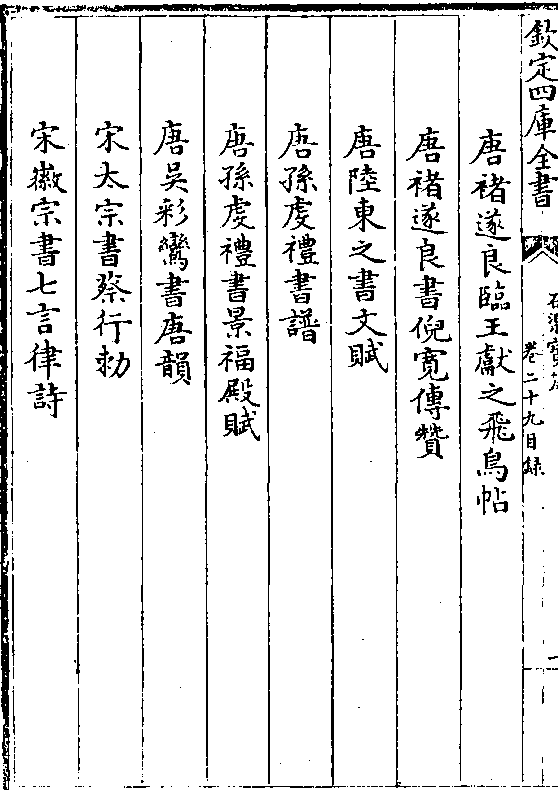 欽定四庫全書
卷二十九目録
唐褚遂良臨王獻之飛鳥帖
唐褚遂良書倪寛傳贊
唐陸東之書文賦
唐孫䖍禮書譜
唐孫䖍禮書景福殿賦
唐吳彩鸞書唐韻
宋太宗書蔡行勑
宋徽宗書七言律詩